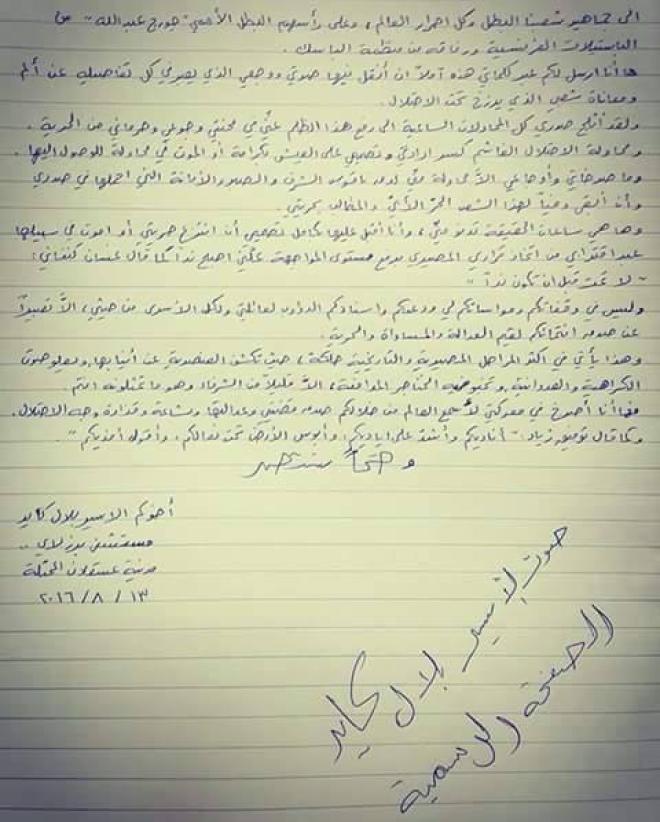 الى جماهير شعبنا البطل وكل احرار العالم، وعلى رأسهم البطل الأممي "جورج عبدالله" من
الباستيلات الفرنسية ورفاقه من منظمة الباسك.
ها أنا ارسل لكم عبر كلماتي هذه آملاً ان أنقل فيها صوتي ووجعي الذي يصرخ في كل تفاصيله عن ألم
ومعاناة شعبي الذي يرزح تحت الاحتلال.
ولقد أثلج صدري كل المحاولات الساعية الى رفع هذا الظلم عني في محنتي وجوعي وحرماني من الحرية.
ومحاولة الاحتلال الغاشم كسر ارادتي وتصميمي على العيش بكرامة أو الموت في محاولة للوصول اليها.
وما صرخاتي وأوجاعي الا محاولة مني لدق ناقوس الشرف والصمود والأمانة التي احملها في صدري
وأن أبقى وفياً لهذا الشعب الحرّ الأبيّ والمطالب بحريتي.
وها هي ساعات الحقيقة تدنو مني، وأنا أقبل عليها بكامل تصميمي أن انتزع حريتي أو اموت في سبيلها
عند اقترابي من اتخاذ قراري المصيري برفع مستوى المواجهة علّني اصبح نداً كما قال غسان كنفاني:
"لا تمت قبل ان تكون نداً"
وليس في وقفاتكم ومواساتكم لي ودعمكم واسنادكم الدؤوب لعائلتي ولكل الأسرى من حيثي، الا تعبيراً
عن صدق انتمائكم لقيم العدالة والمساواة والحرية.
وهذا يأتي في اكثر المراحل المصيرية والتاريخية حلكة، حيث تكشف العنصرية عن أنيابها ويعلو صوت
الكراهية والعدوانية وتخبو فيه الحناجر المدافعة، الا قليلاً من الشرفاء وهو ما تمثلونه انتم.
فها أنا أصرخ في معركتي لأسمع العالم من خلالكم صدق قضيتي وعدالتها وبشاعة وقذارة وجه الاحتلال.
وكما قال توفيق زياد: "أناديكم وأشد على اياديكم، وأبوس الأرض تحت نعالكم، وأقول أفديكم".
وحتماً سننتصر
أخوكم الاسير بلال كايد
مستشفى برزلاي..
مدينة عسقلان المحتلة
١٣ / ٨ / ٢٠١٦
صوت الأسير بلال كايد
الصفحة الرسمية